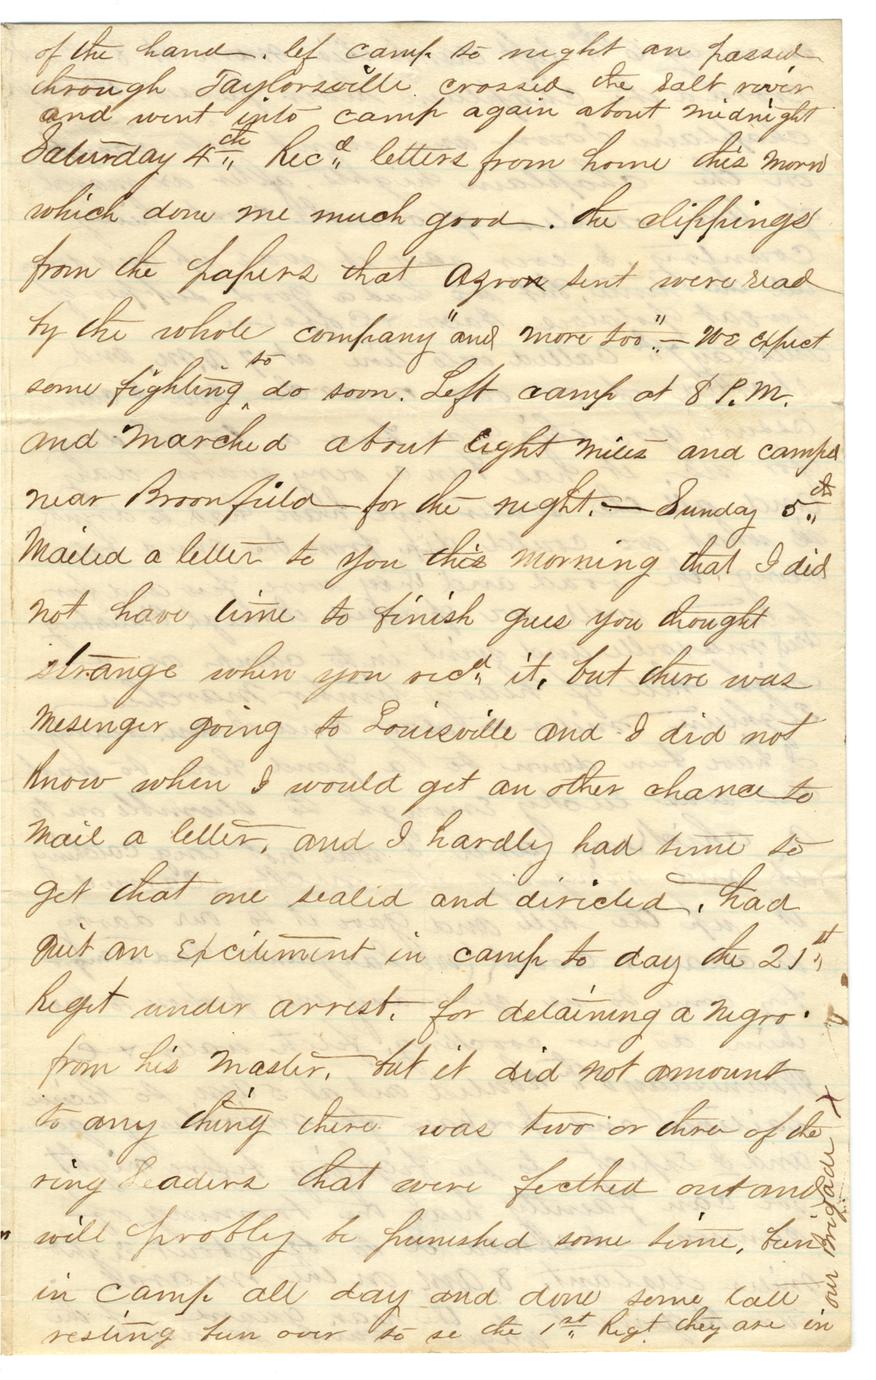 of the hand. lef camp to night an passed
through Taylorsville crossed the Salt river
and went into camp again about midnight
Saturday 4th Recd letters from home this morn
which done me much good. the clippings
from the papers that sent were read
by the whole company "and more too". — We expect
some fighting to do soon. Left camp at 8 P.M.
and marched about eight miles and campd
near Broomfield for the night. — Sunday 5th
Mailed a letter to you this morning that I did
not have time to finish gues you thought
strange when you recd it, but there was
mesenger going to Louisville and I did not
know when I would get an other chance to
mail a letter, and I hardly had time to
get that one sealed and diricted. had
quit an Excitement in camp to day the 21st
Regt under arrest. for detaining a negro.
from his master, but it did not amount
to any thing there was two or three of the
ring leaders that were fecthed out and
will probly be punished some time, bin
in camp all day and done some tall
resting bin over to se the 1st Regt. they are in
our Brigade X